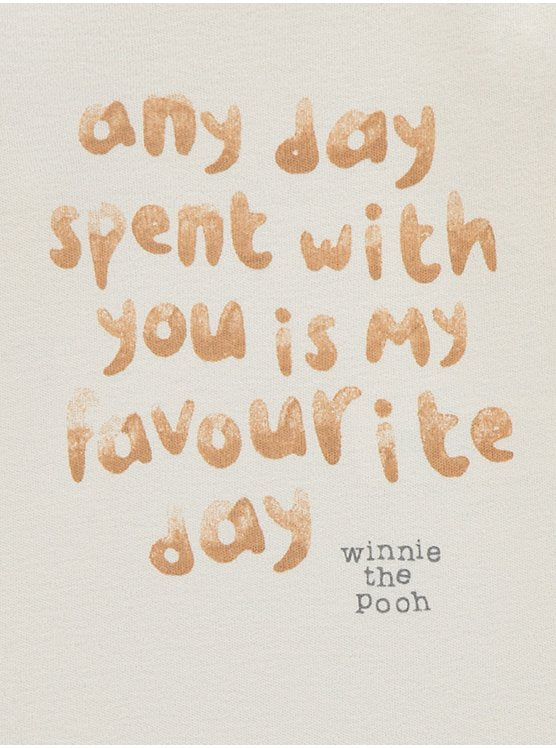 any day
spent with
you is my
favourite
day
winnie
the
pooh